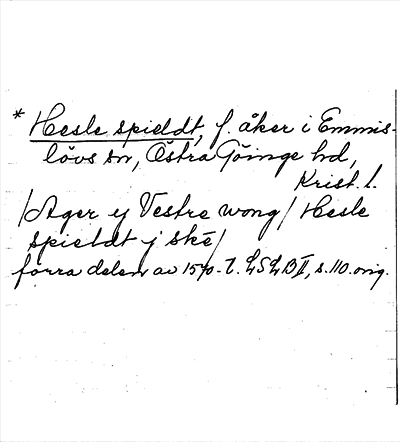 * Hesle spieldt, f. åker i Emmis-
lövs sn, Östra Göinge hd,
Krist. l.
/Ager ij Vestre wong/ Hesle
spieldt j skē/
förra delen av 1570-t. LSLB II, s. 110. orig.